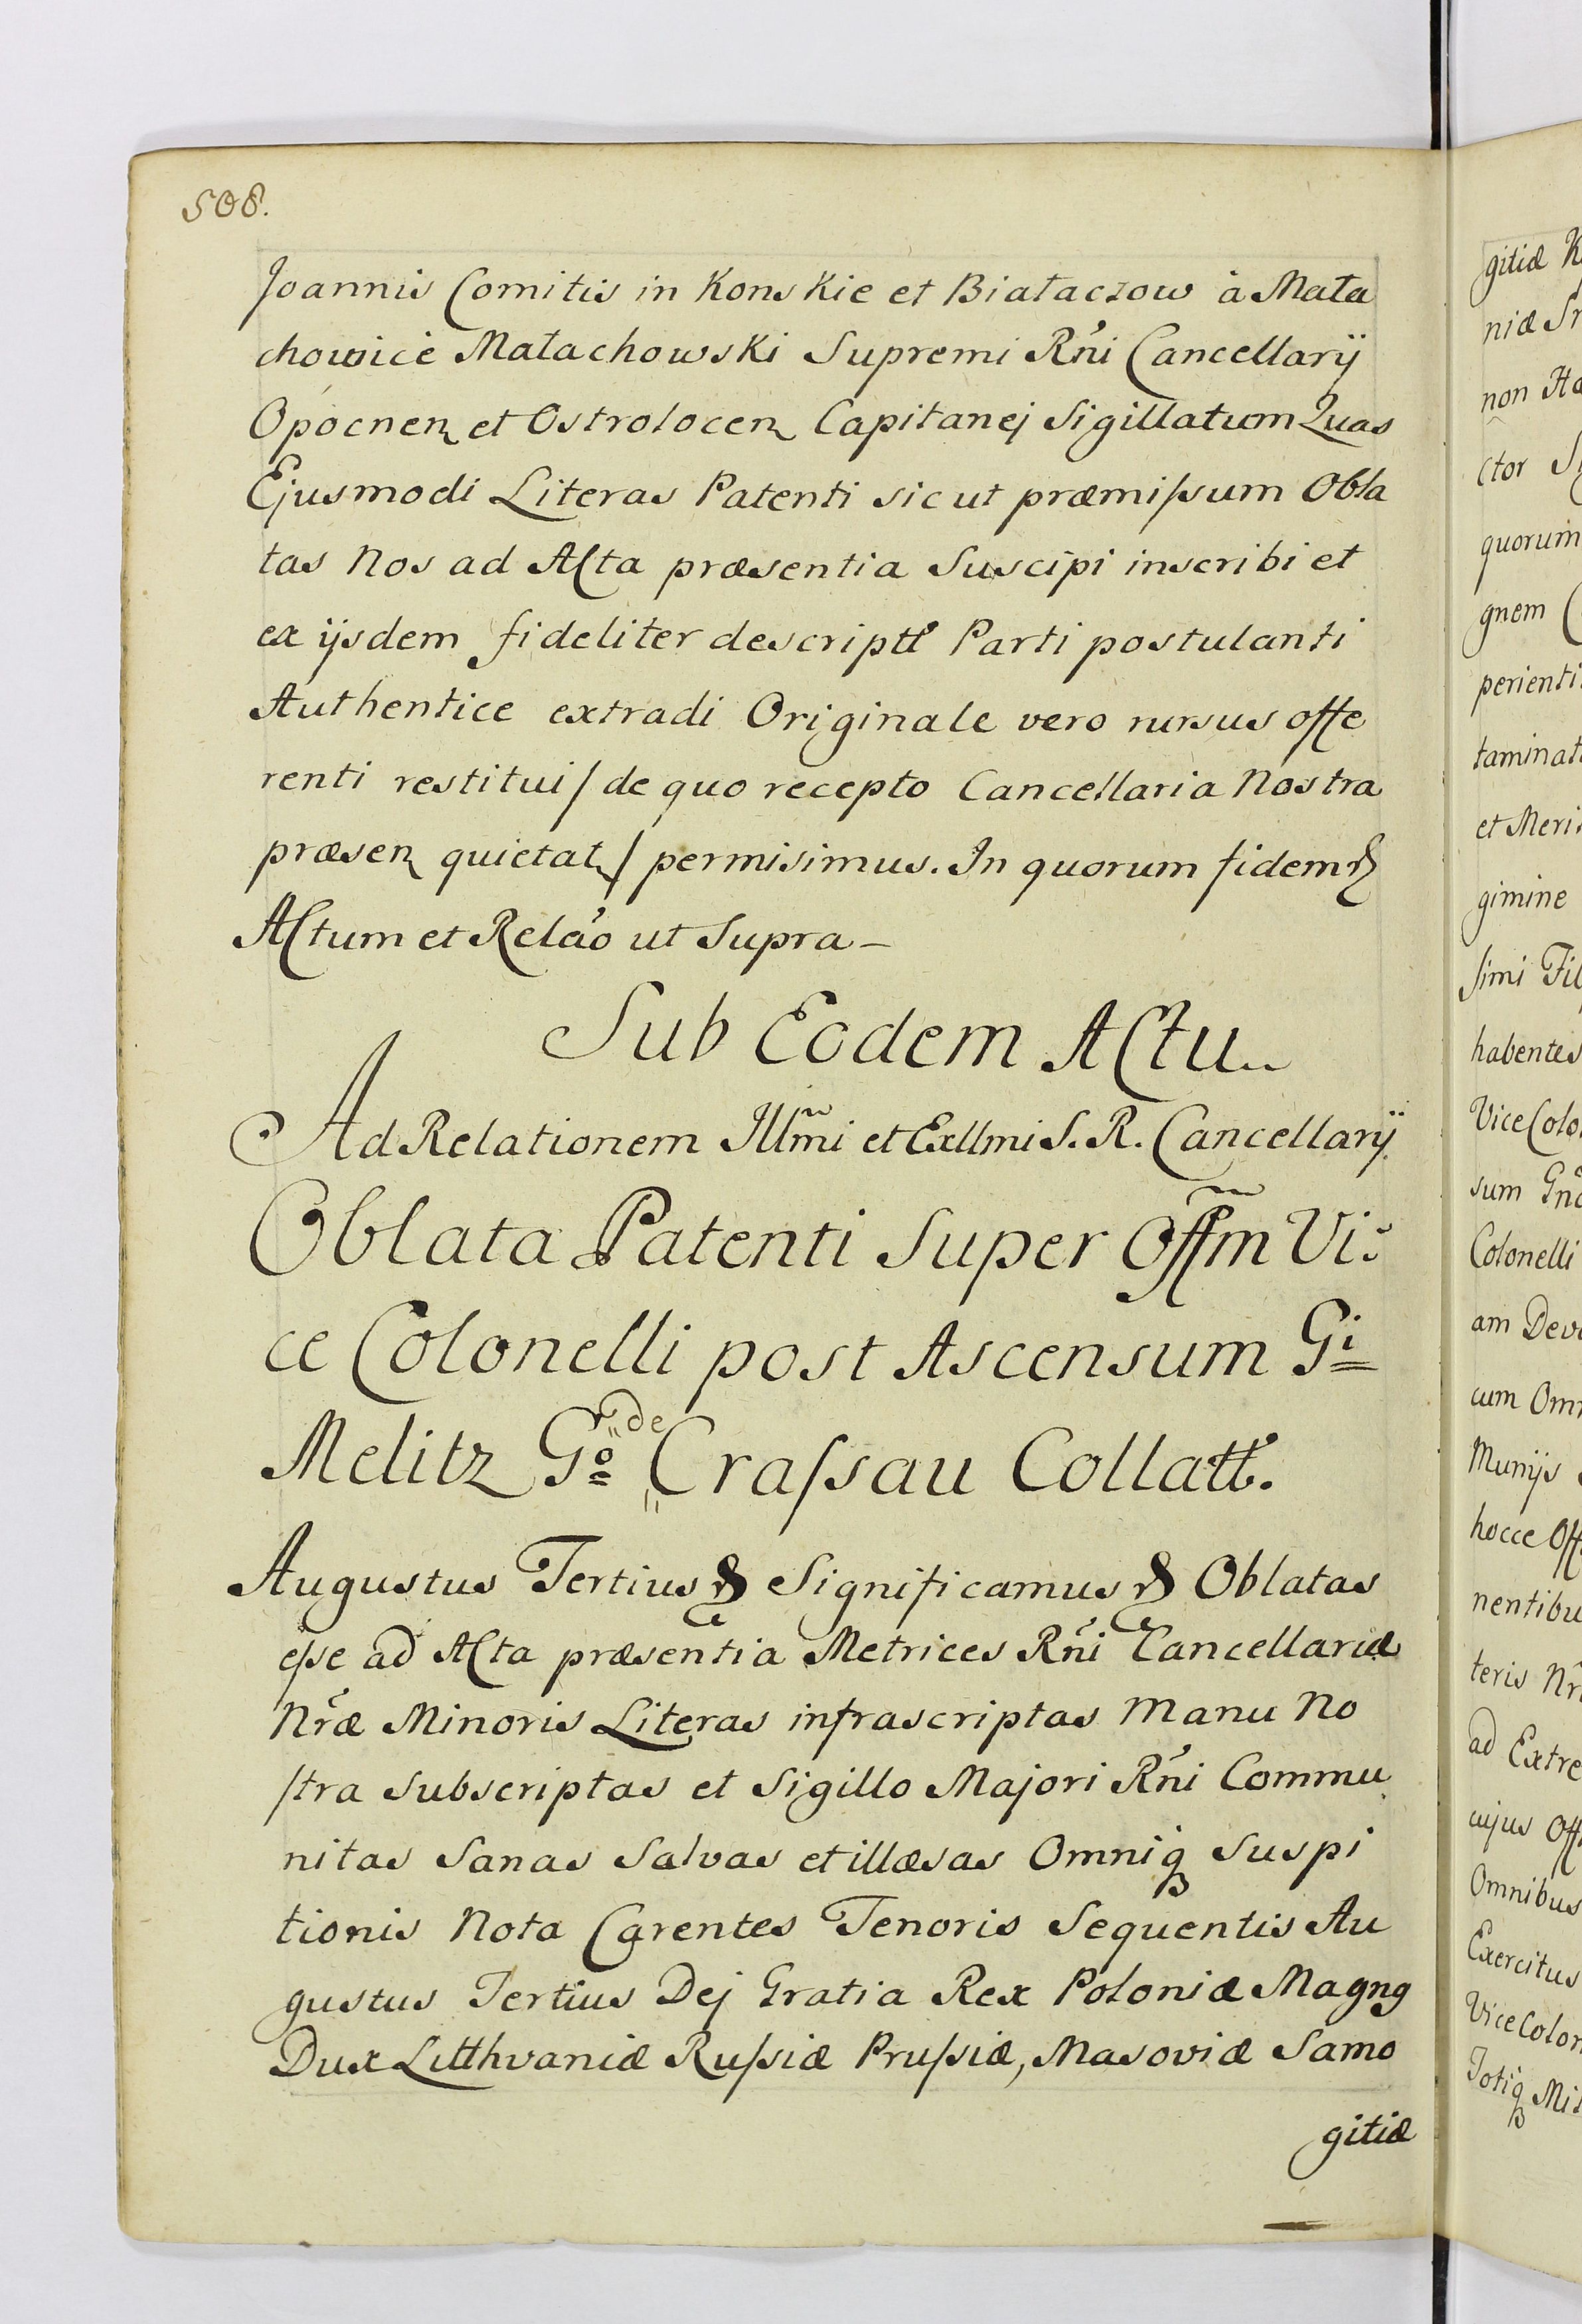 508.
Joannis Comitis in Konskie et Białaczow à Mała
chowice Małachowski Supremi Rñi Cancellarij
Opocnen et Ostrolocen Capitanej Sigillatum Quas
Ejusmodi Literas Patenti sicut præmissum Obla
tas Nos ad Acta præsentia Suscipi inscribi et
ex ijsdem fideliter descriptt Parti postulanti
Authentice extradi Originale vero rursus offe
renti restitui / de quo recepto Cancellaria Nostra
præsen quietat / permisimus. In quorum fidem &
Actum et Relão ut Supra –
Sub Eodem Actu
Ad Relationem Illm̃i et Exllmi S. R. Cancellarij
Oblata Patenti Super Off̃m Vi
ce Colonelli post Ascensum Gi
Melitz Go de Crassau Collatt.
Augustus Tertius & Significamus & Oblatas
esse ad Acta præsentia Metrices Rñi Cancellariæ
Nr̃æ Minoris Literas infrascriptas Manu No
stra Subscriptas et Sigillo Majori Rñi Commu
nitas Sanas Salvas et illæsas Omniq Suspi
tionis Nota Carentes Tenoris Sequentis Au
gustus Tertius Dej Gratia Rex Poloniæ Magng
Dux Litthvaniæ Russiæ Prussiæ, Masoviæ Samo
gitiæ
gitiæ
niæ
non
ctor
quorum
gnem
perienti
taminat
et Meri
gimine
simi
habentes
Vice Colo
sum
Colonelli
am
cum
Munijs
hocce
nentibu
teris
ad Extre
cujus
Omnibus
Exercitus
Vice Colon
Totiq